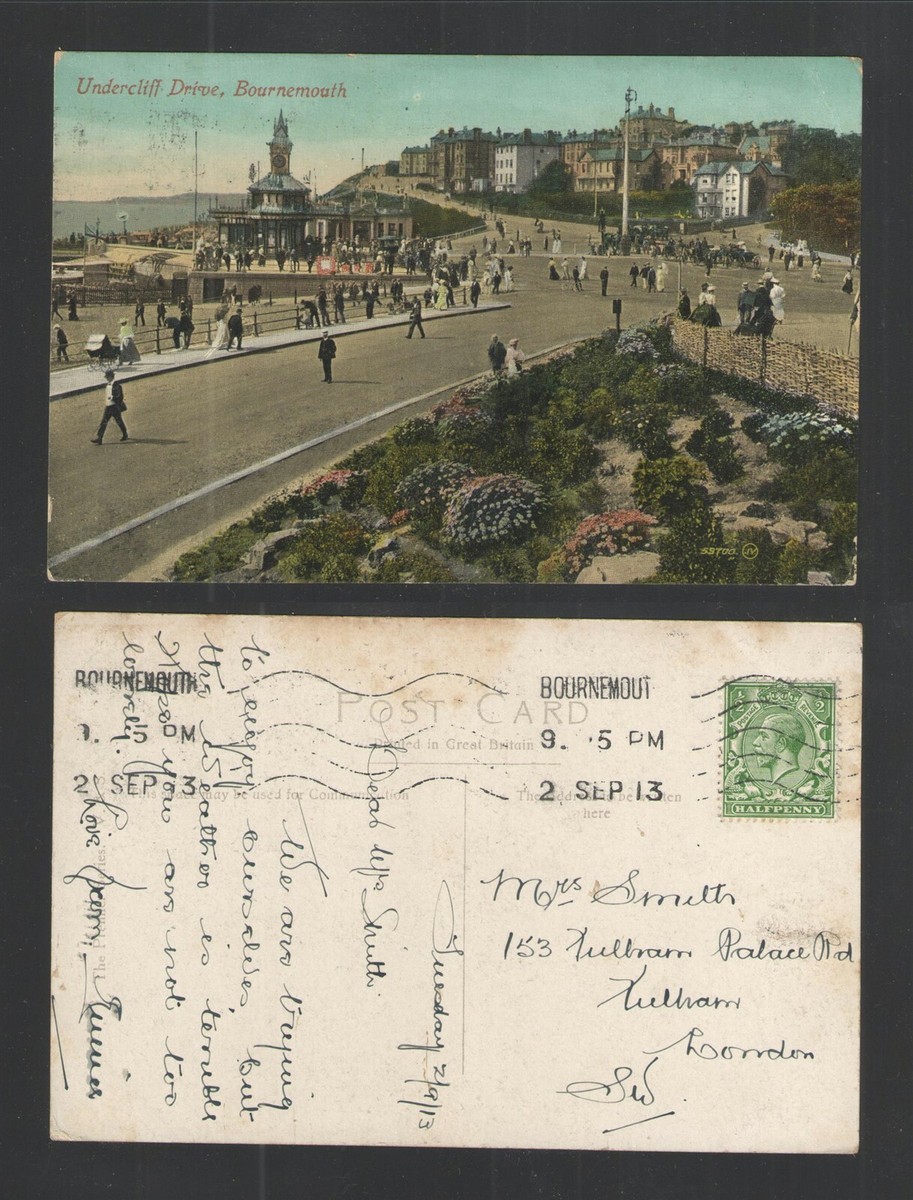 Undercliff Drive, Bournemouth
53700 JV
BOURNEMOUTH
9. 15 PM
2 SEP 13
BOURNEMOUT
9. 5 PM
2 SEP 13
POST CARD
Printed in Great Britain
This space may be used for Communication
The Address to be written
here
HALFPENNY
Tuesday 2/9/13
Dear Mrs Smith.
We are trying
to enjoy ourselves but
the weather is terrible
Hope you are not too
lonely.
Love from
Mrs Smith
153 Fulham Palace Rd
Fulham
London
SW